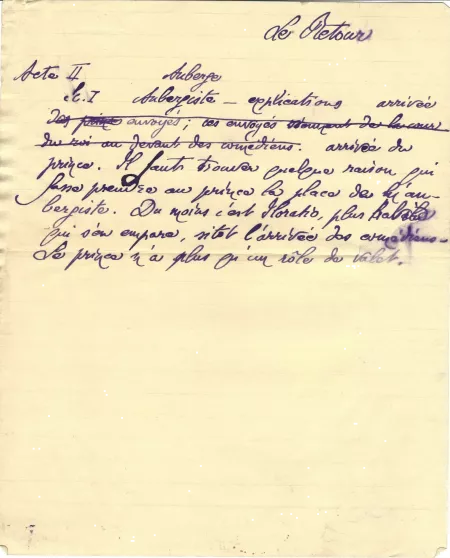 Le Retour
Acte II Auberge
Sc. I Aubergiste – explications arrivée
des prince envoyés ; ces envoyés viennent de la cour
du roi au devant des comédiens. arrivée du
prince. Il faut trouver quelque raison qui
fasse prendre au prince la place de l'au-
bergiste. Du moins c'est Horatio, plus
qui s'en empare, sitôt l'arrivée des comédiens –
Le prince n'a plus qu'un rôle de valet.